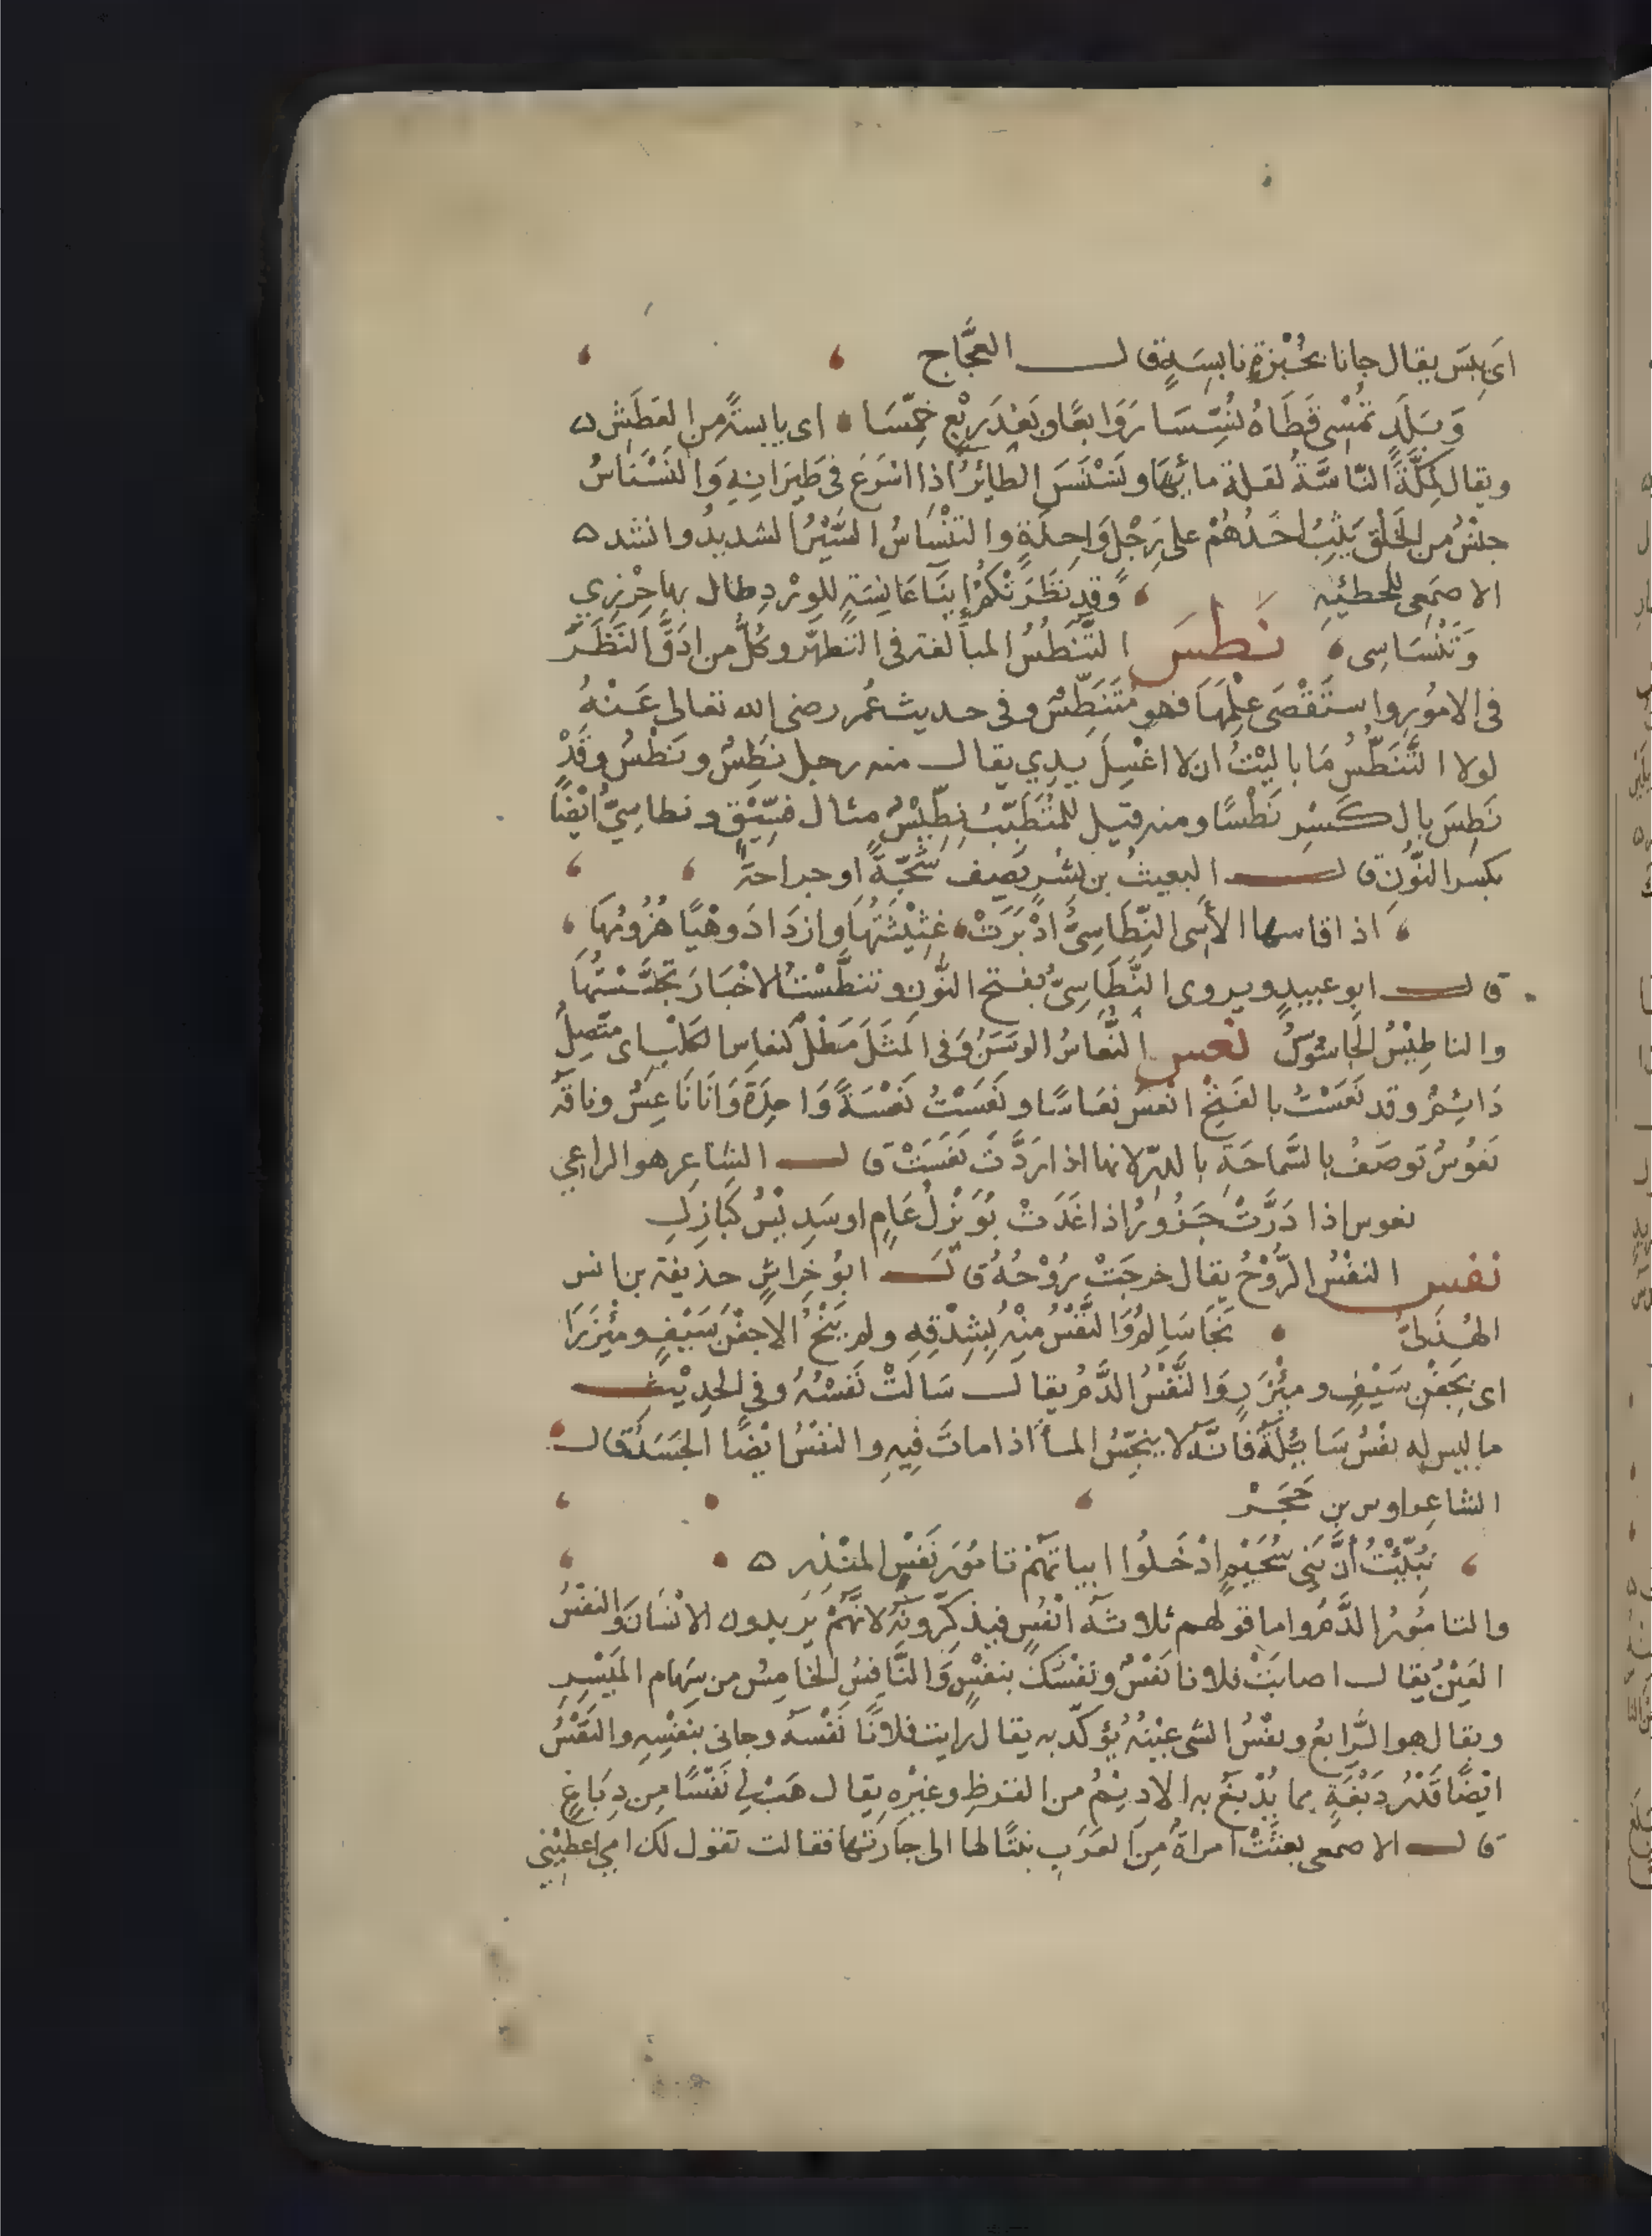 اى يبس يقال جانا بخُبْزةٍ نابسَةٍ قال العجَّاج
وَبَلَدٍ تُمْسِى قَطَاهُ نُسَّسَا رَوَابعًا وبَعْدَ رِبْعٍ خُمَّسَا اى يابسةً من العَطَشِ ه
ويقال لِمَكَّةَ النَّاسَّةُ لقلة مائِها ونَسْنَسَ الطَائِرُ اذا اسْرَعَ فى طَيَرَانِهِ وَالنَسْنَاسُ
جنسٌ من الخَلْقِ يَثِبُ احَدُهُمْ على رِجْلٍ وَاحِدَةٍ والتَنْسَاسُ السَّيْرُ الشديدُ وانشد ه
الاصمَعى للحطئيه وَقد نَظَرْتكُمُ إِينَاءَ عَاشِيَةٍ للوِرْدِ طال بها حَوْزِي
وَتَنْسَاسِى نَطسَ التَّنَطُّسُ المبالغة فى التطهّر وكُلُّ من ادَقَّ النَظَرَ
فى الامُورِ واستَقْصَى عِلْمَهَا فهو مُتَنَطِّسٌ وفى حديث عُمر رضى الله تعالى عَنْهُ
لولا التَّنَطُّسُ مَا باليْتُ ان لا اغْسِلَ يدِي يقال منه رجل نَطِسٌ ونَطُسٌ وقَدْ
نَطِسَ بالكَسْرِ نَطَسًا ومنه قيل للمُتَطَبِّبِ نِطِّيسٌ مثال فِسِّيْقٍ ونطاسِيٌّ ايْضًا
بكسر النُّونِ قال البعيثُ بن بشر يَصِف شَجَّةً او جراحة
اذا قاسها الأسِى النِّطَاسِيُّ ادْبَرَتْ غثِيْثَتُهَا وازدَادَ وهْيًا هُزُومُهَا
قال ابو عبيدٍ ويروى النَّطَاسِىُّ بفتح النُّونِ وتنطَّسْتُ الاخْبَارَ تجَسَّسْتُهَا
والناطِسُ الجَاسُوسُ نعس النُّعاسُ الوَسَنُ وَفى المثَلَ مَطْلٌ كنعاس الكلْبِ اى مُتَّصِلٌ
دَائِمٌ وقد نَعَسْتُ بالفَتْحِ انْعُسُ نعَاسًا ونَعَسْتُ نَعْسَةً وَاحِدَةً وَانَا نَاعِسٌ وناقَة
نَعُوسٌ توصَفُ بالسَّماحَةِ بالدرّ لانها اذا دَرَّتْ نَعَسَتْ قال الشاعِر هو الراعِي
نعوس اذا دَرَّتْ جَرُوزٌ اذا غَدَتْ بُوَيْزِلُ عَامٍ او سَدِيسٌ كَبَازِلِ
نفس النفْسُ الرُّوْحُ يقال خرجَتْ رُوْحُهُ قال ابوُ خِراشٍ حذيفة بن انس
الهُذَلىُّ نَجَا سَالِمٌ وَالنَّفْسُ مِنْهُ بِشِدْقِهِ ولم يَنْجُ الا جفْنَ سَيْفٍ ومئزَرَا
اى بِجَفْنِ سَيْفٍ ومِئْزَرٍ وَالنَّفْسُ الدَّمُ يقال سَالَتْ نَفسُهُ وفى الحدِيْث
ما ليس له نفْسٌ سَائِلَةٌ فانَّهُ لا ينجّسُ الماَ اذا ماتَ فِيهِ والنفْسُ ايضًا الجَسَدُ قال
الشاعِر اوس بن حَجَرْ
نُبِّئْتُ أنَّ بَنِى سُحَيْمٍ ادْخَلُوا ابياتَهُمْ تامُورَ نَفْسِ المنْذر ه
والتامُورُ الدَّمُ واما قولهم ثلاثةُ انْفُسٍ فيذكّرُونَه لانّهُمْ يُريدون الانْسَانَ وَالنفْسُ
العَيْنُ يقال اصابَتْ فلانا نَفْسٌ ونَفَسْتُكَ بنفْسٍ وَالنَّافِسُ الخامِسُ من سِهَام المَيْسِرِ
ويقال هو الرَّابعُ ونفْسُ الشى عَيْنُهُ يُؤكّدُ به يقال رايت فلانًا نَفْسَهُ وجانى بنَفْسِهِ والنَفْسُ
ايْضًا قَدْرُ دَبْغَةٍ مما يُدْبَغُ به الادِيْمُ من القرظِ وغَيْرِه يقال هَبْ لِى نَفْسًا مِن دِبَاغٍ
قال الاصمعى بعثَتْ امراةٌ مِنَ العَرَبِ بنتًا لها الى جَارَتِها فقالت تقول لك امِى اعطِيْنِي